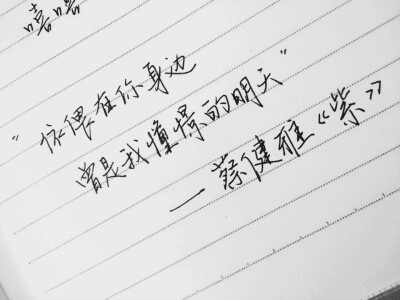 嘻嘻
"依偎在你身边
曾是我憧憬的明天"
—蔡健雅《紫》